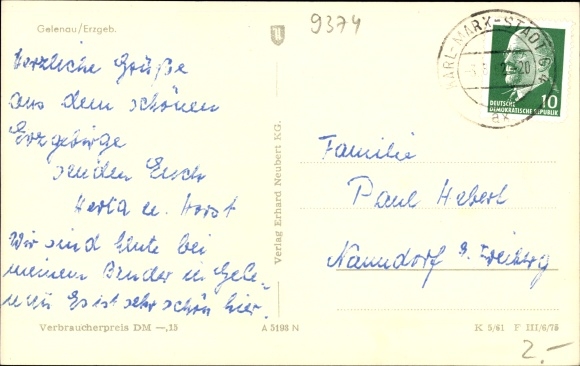 Gelenau/Erzgeb.
9374
KARL-MARX-STADT
DEUTSCHE
DEMOKRATISCHE REPUBLIK
10
Herzliche Grüße
aus dem schönen
Erzgebirge
senden Euch
Herta u. Horst
Wir sind heute bei
meinem Bruder in Gele-
nau. Es ist sehr schön hier.
Verlag Erhard Neubert KG.
Familie
Paul Hebert
Naundorf b. Freiberg
Verbraucherpreis DM —,15
A 5198 N
K 5/61 F III/6/75
2.-